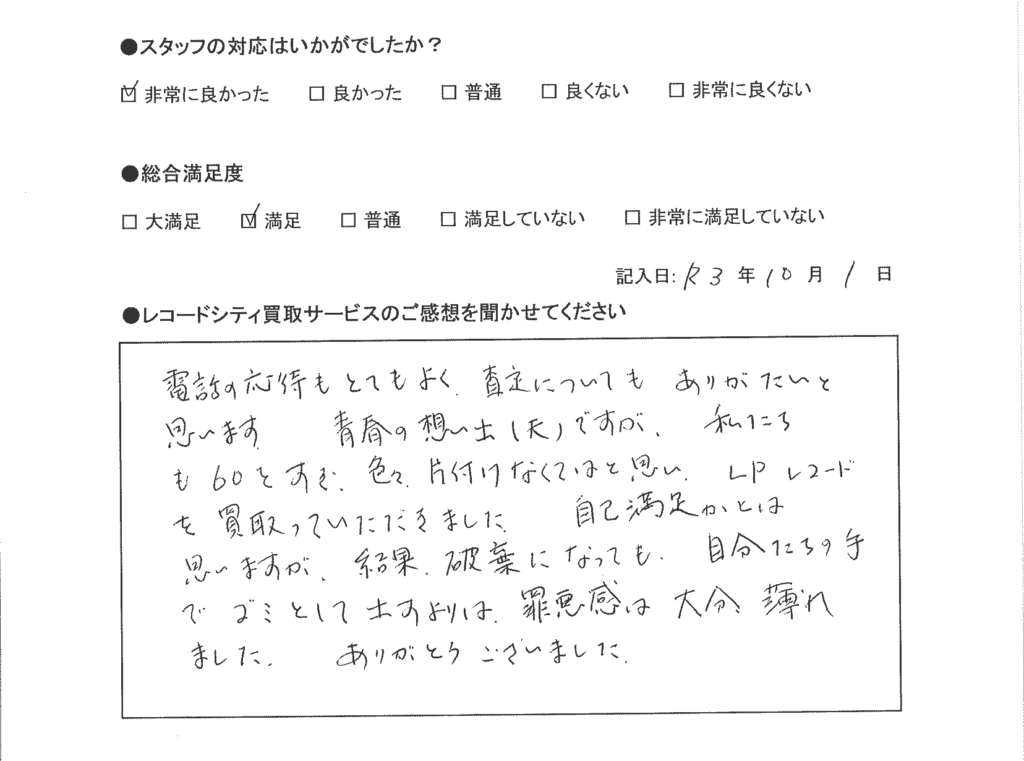 ●スタッフの対応はいかがでしたか？
☑ 非常に良かった □ 良かった □ 普通 □ 良くない □ 非常に良くない
●総合満足度
□ 大満足 ☑ 満足 □ 普通 □ 満足していない □ 非常に満足していない
記入日: R3 年 10 月 1 日
●レコードシティ買取サービスのご感想を聞かせてください
電話の応待もとてもよく、査定についても ありがたいと
思います 青春の想い出(夫)ですが、私たち
も60をすぎ、色々、片付けなくてはと思い、LPレコード
を買取っていただきました 自己満足かとは
思いますが、結果、破棄になっても、自分たちの手
で ゴミとして出すよりは、罪悪感は 大分、薄れ
ました。 ありがとうございました。